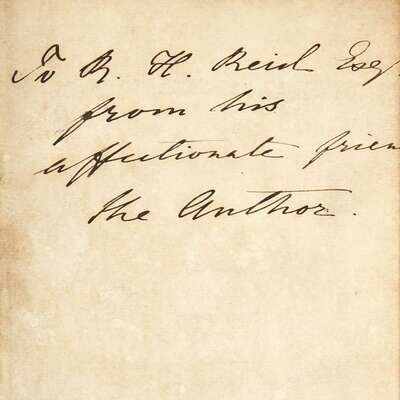 To R. H. Reid Esq.
from his
affectionate frien
the Author.